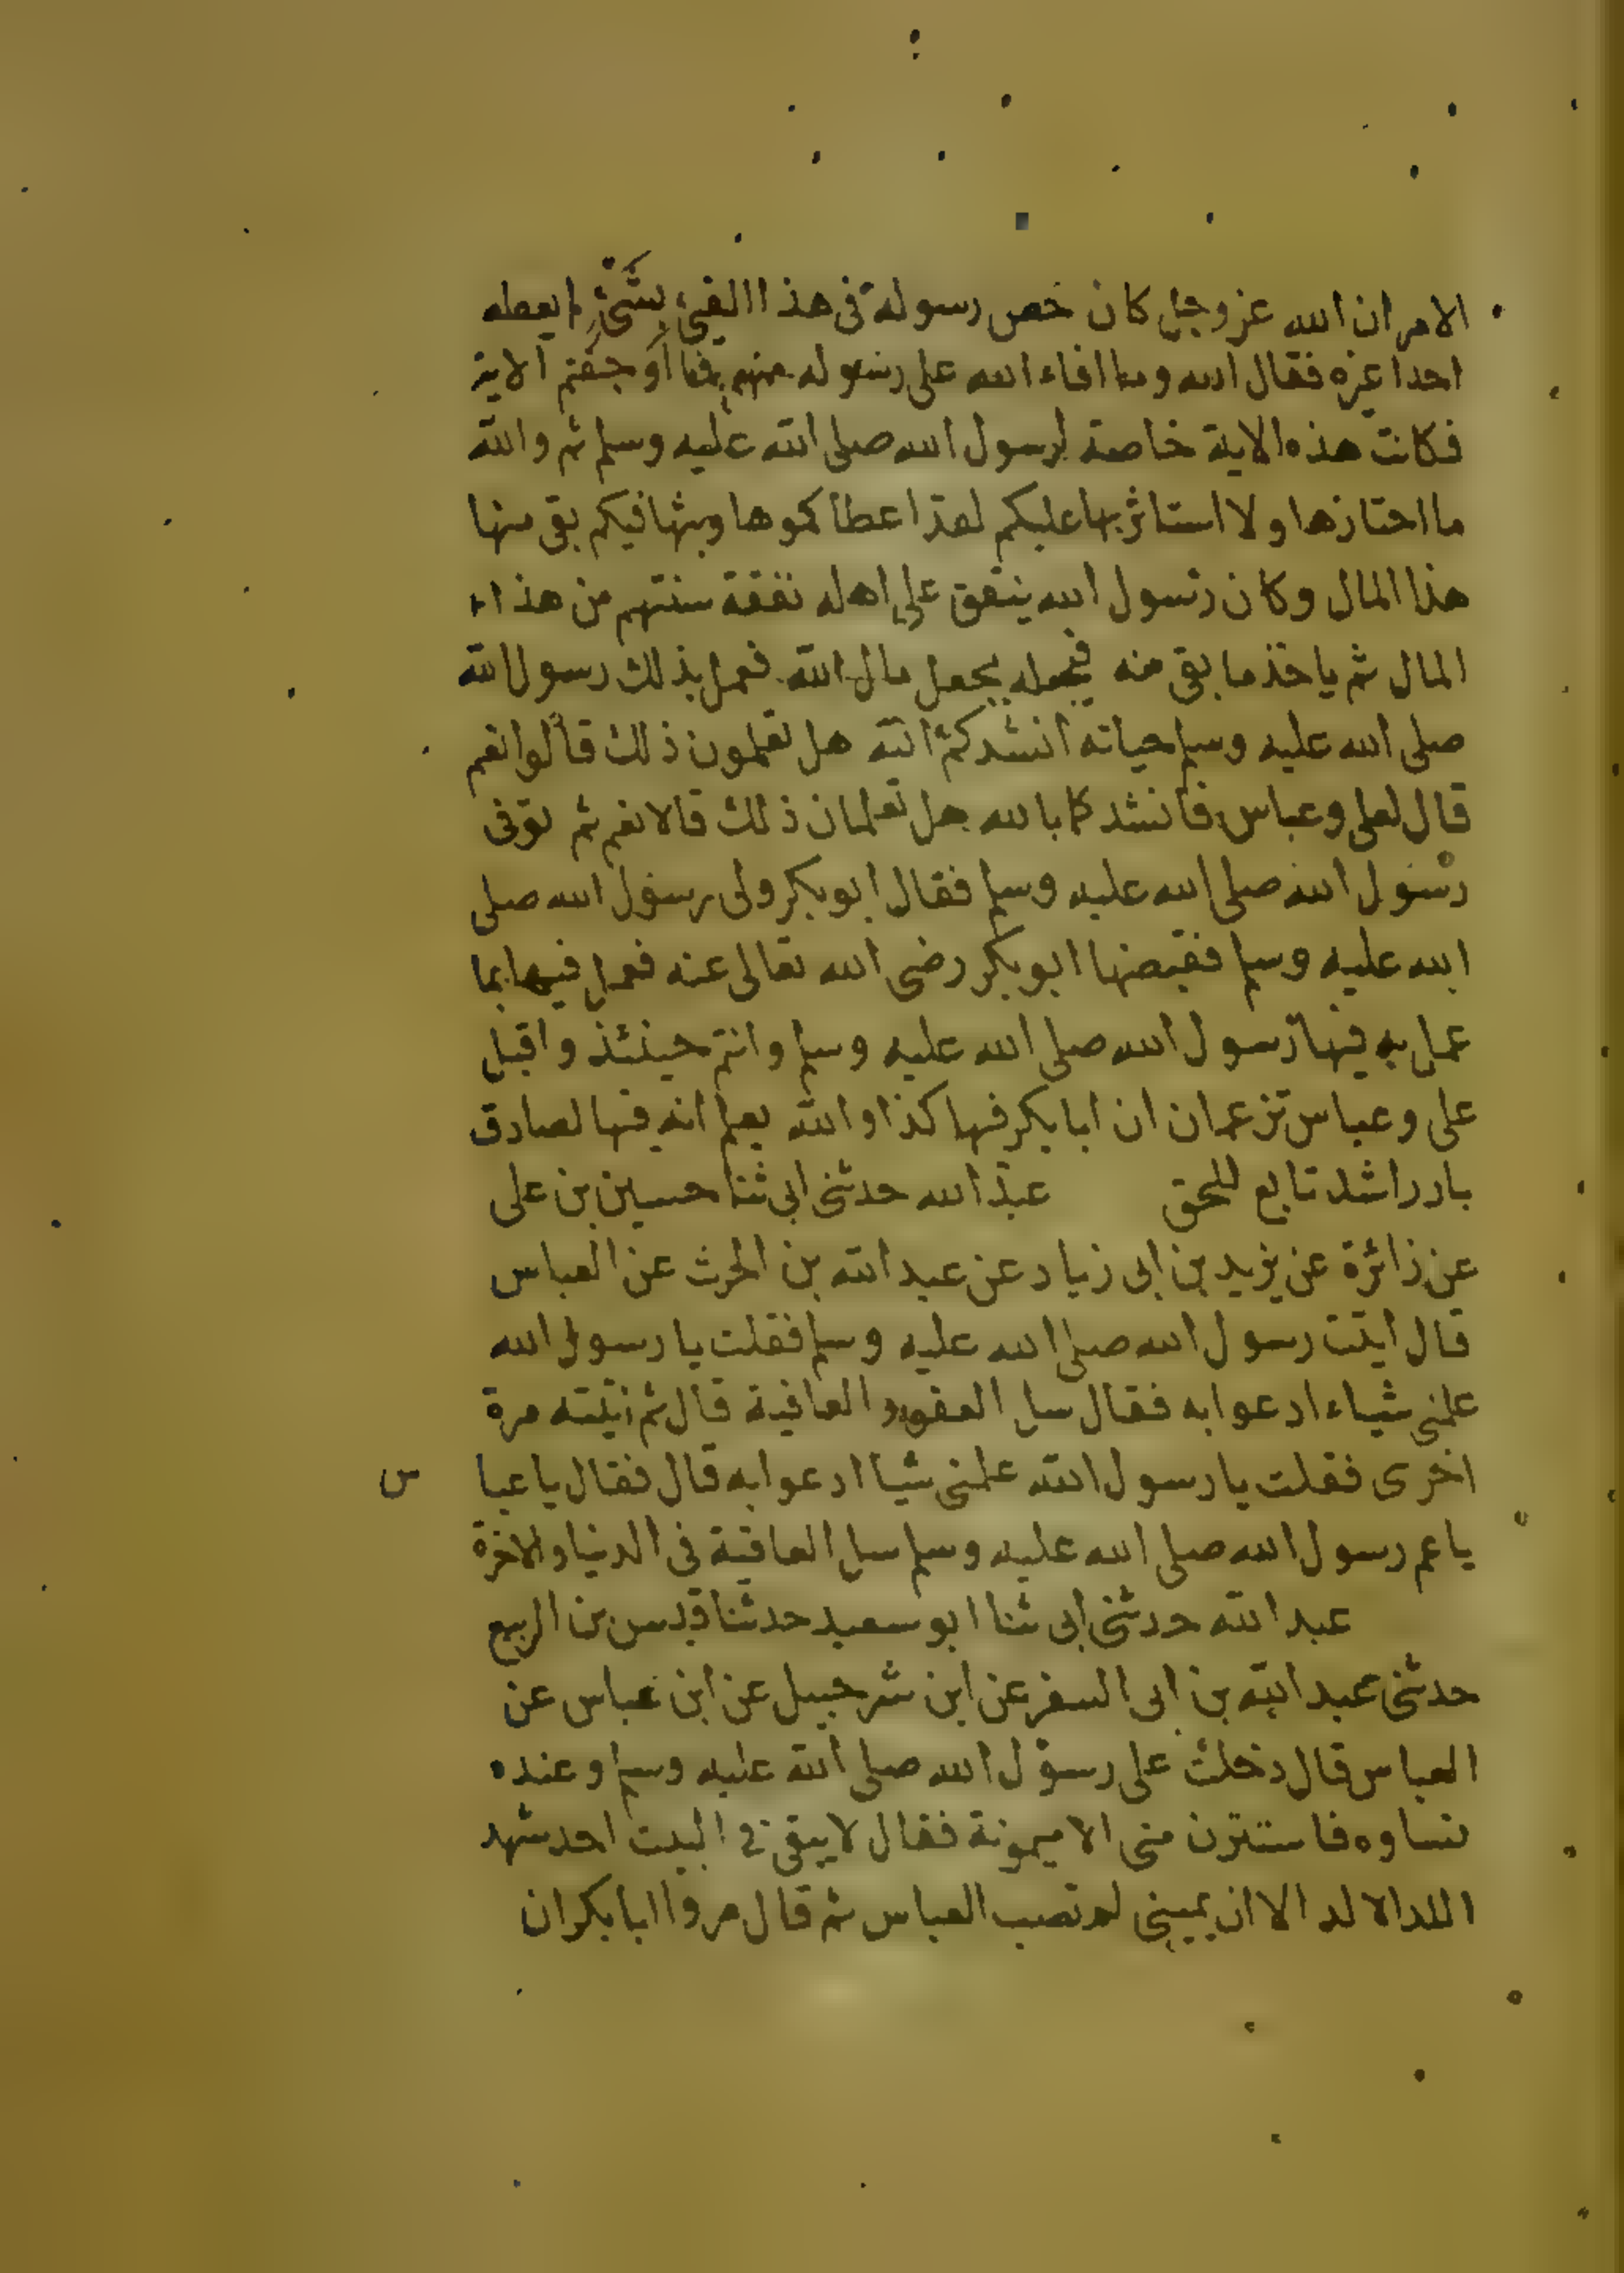 الامر ان الله عز وجل كان خص رسوله فى هذا االفيئ بشئ لم يعطه
احدا غيره فقال الله وما افاء الله على رسوله منهم فما اوجفتم الاية
فكانت هذه الاية خاصة لرسول الله صلى الله عليه وسلم ثم والله
ما احتازها ولا استاثر بها عليكم لقد اعطاكموها وبثها فيكم بقى منها
هذا المال وكان رسول الله ينفق على اهله نفقة سنتهم من هذا
المال ثم ياخذ ما بقى منه فيجعله يجعل مال الله فعمل بذلك رسول الله
صلى الله عليه وسلم حياته انشدكم الله هل تعلمون ذلك قالوا نعم
قال لعلى وعباس فانشدكما بالله هل تعلمان ذلك قالا نعم ثم توفى
رسول الله صلى الله عليه وسلم فقال ابوبكر ولى رسول الله صلى
الله عليه وسلم فقبضها ابوبكر رضى الله تعالى عنه فعمل فيها بما
عمل به فيها رسول الله صلى الله عليه وسلم وانتم حينئذ واقبل
على وعباس تزعمان ان ابابكر فيها كذا والله يعلم انه فيها لصادق
بار راشد تابع للحق عبد الله حدثنى ابى ثنا حسين بن على
عن زائرة عن يزيد بن ابى زياد عن عبد الله بن الحرث عن العباس
قال اتيت رسول الله صلى الله عليه وسلم فقلت يا رسول الله
علمنى شياء ادعوا به فقال سل العفو والعافية قال ثم اتيته مرة
اخرى فقلت يا رسول الله علمنى شيا ادعوا به قال فقال يا عبا س
يا عم رسول الله صلى الله عليه وسلم سل العافية فى الدنيا والاخرة
عبد الله حدثنى ابى ثنا ابو سعيد حدثنا قيس بن الربيع
حدثنى عبد الله بن ابى السفر عن ابن شرحبيل عن ابن عباس عن
العباس قال دخلت على رسول الله صلى الله عليه وسلم وعنده
نساوه فاستترن منى الا ميمونة فقال لا يبقى فى البيت احد شهد
اللد الا لد الا ان يمينى لم تصب العباس ثم قال مروا ابابكر ان